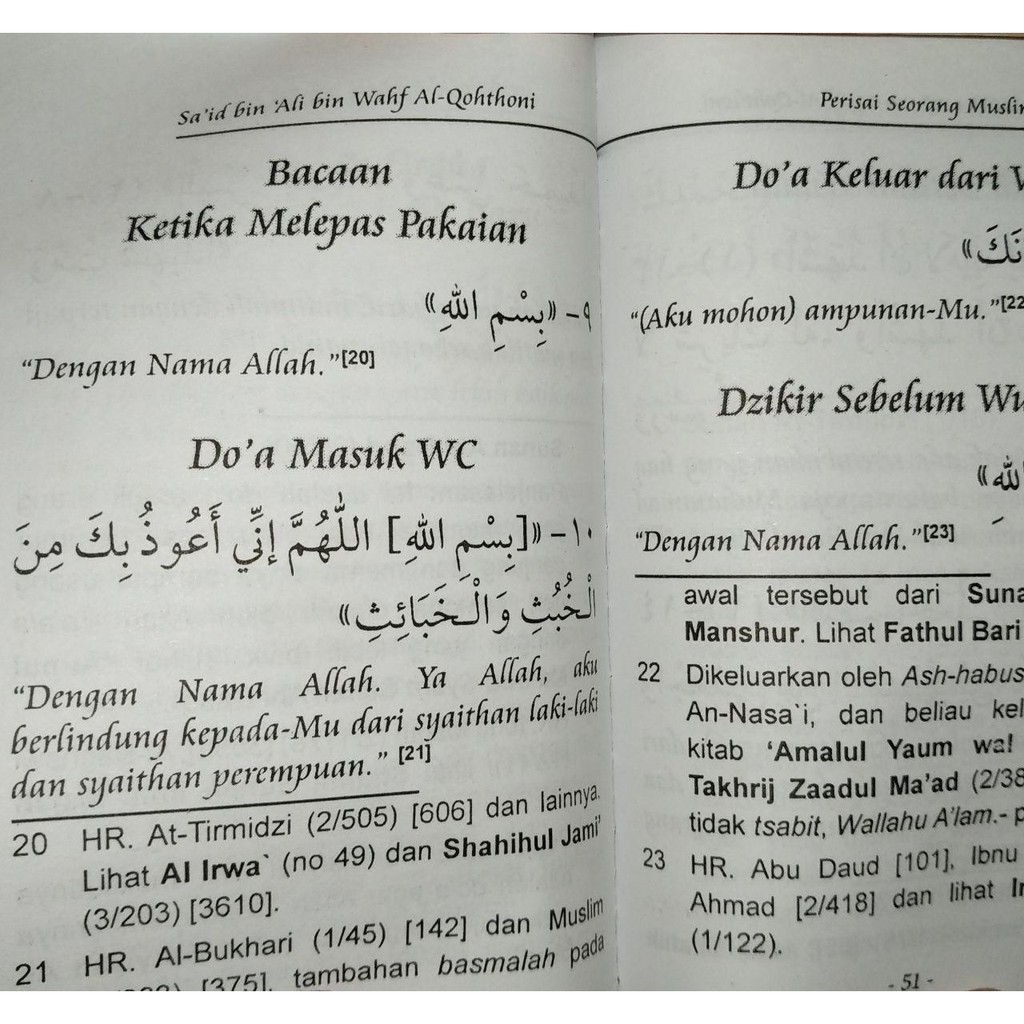 Sa'id bin 'Ali bin Wahf Al-Qohthoni
Bacaan
Ketika Melepas Pakaian
٩- «بِسْمِ اللهِ»
"Dengan Nama Allah."[20]
Do'a Masuk WC
١٠- «[بِسْمِ اللهِ] اللَّهُمَّ إِنِّي أَعُوذُ بِكَ مِنَ
الْخُبُثِ وَالْخَبَائِثِ»
"Dengan Nama Allah. Ya Allah, aku
berlindung kepada-Mu dari syaithan laki-laki
dan syaithan perempuan." [21]
20 HR. At-Tirmidzi (2/505) [606] dan lainnya.
Lihat Al Irwa` (no 49) dan Shahihul Jami'
(3/203) [3610].
21 HR. Al-Bukhari (1/45) [142] dan Muslim
[375]. tambahan basmalah pada
Perisai Seorang
Do'a Keluar dari
"(Aku mohon) ampunan-Mu."[22
Dzikir Sebelum
"Dengan Nama Allah."[23]
awal tersebut dari
Manshur. Lihat Fathul Bari
22 Dikeluarkan oleh Ash-habus
An-Nasa`i, dan beliau
kitab 'Amalul Yaum wal
Takhrij Zaadul Ma'ad (2/38
tidak tsabit, Wallahu A'lam.-
23 HR. Abu Daud [101], Ibnu
Ahmad [2/418] dan lihat
(1/122).
- 51 -